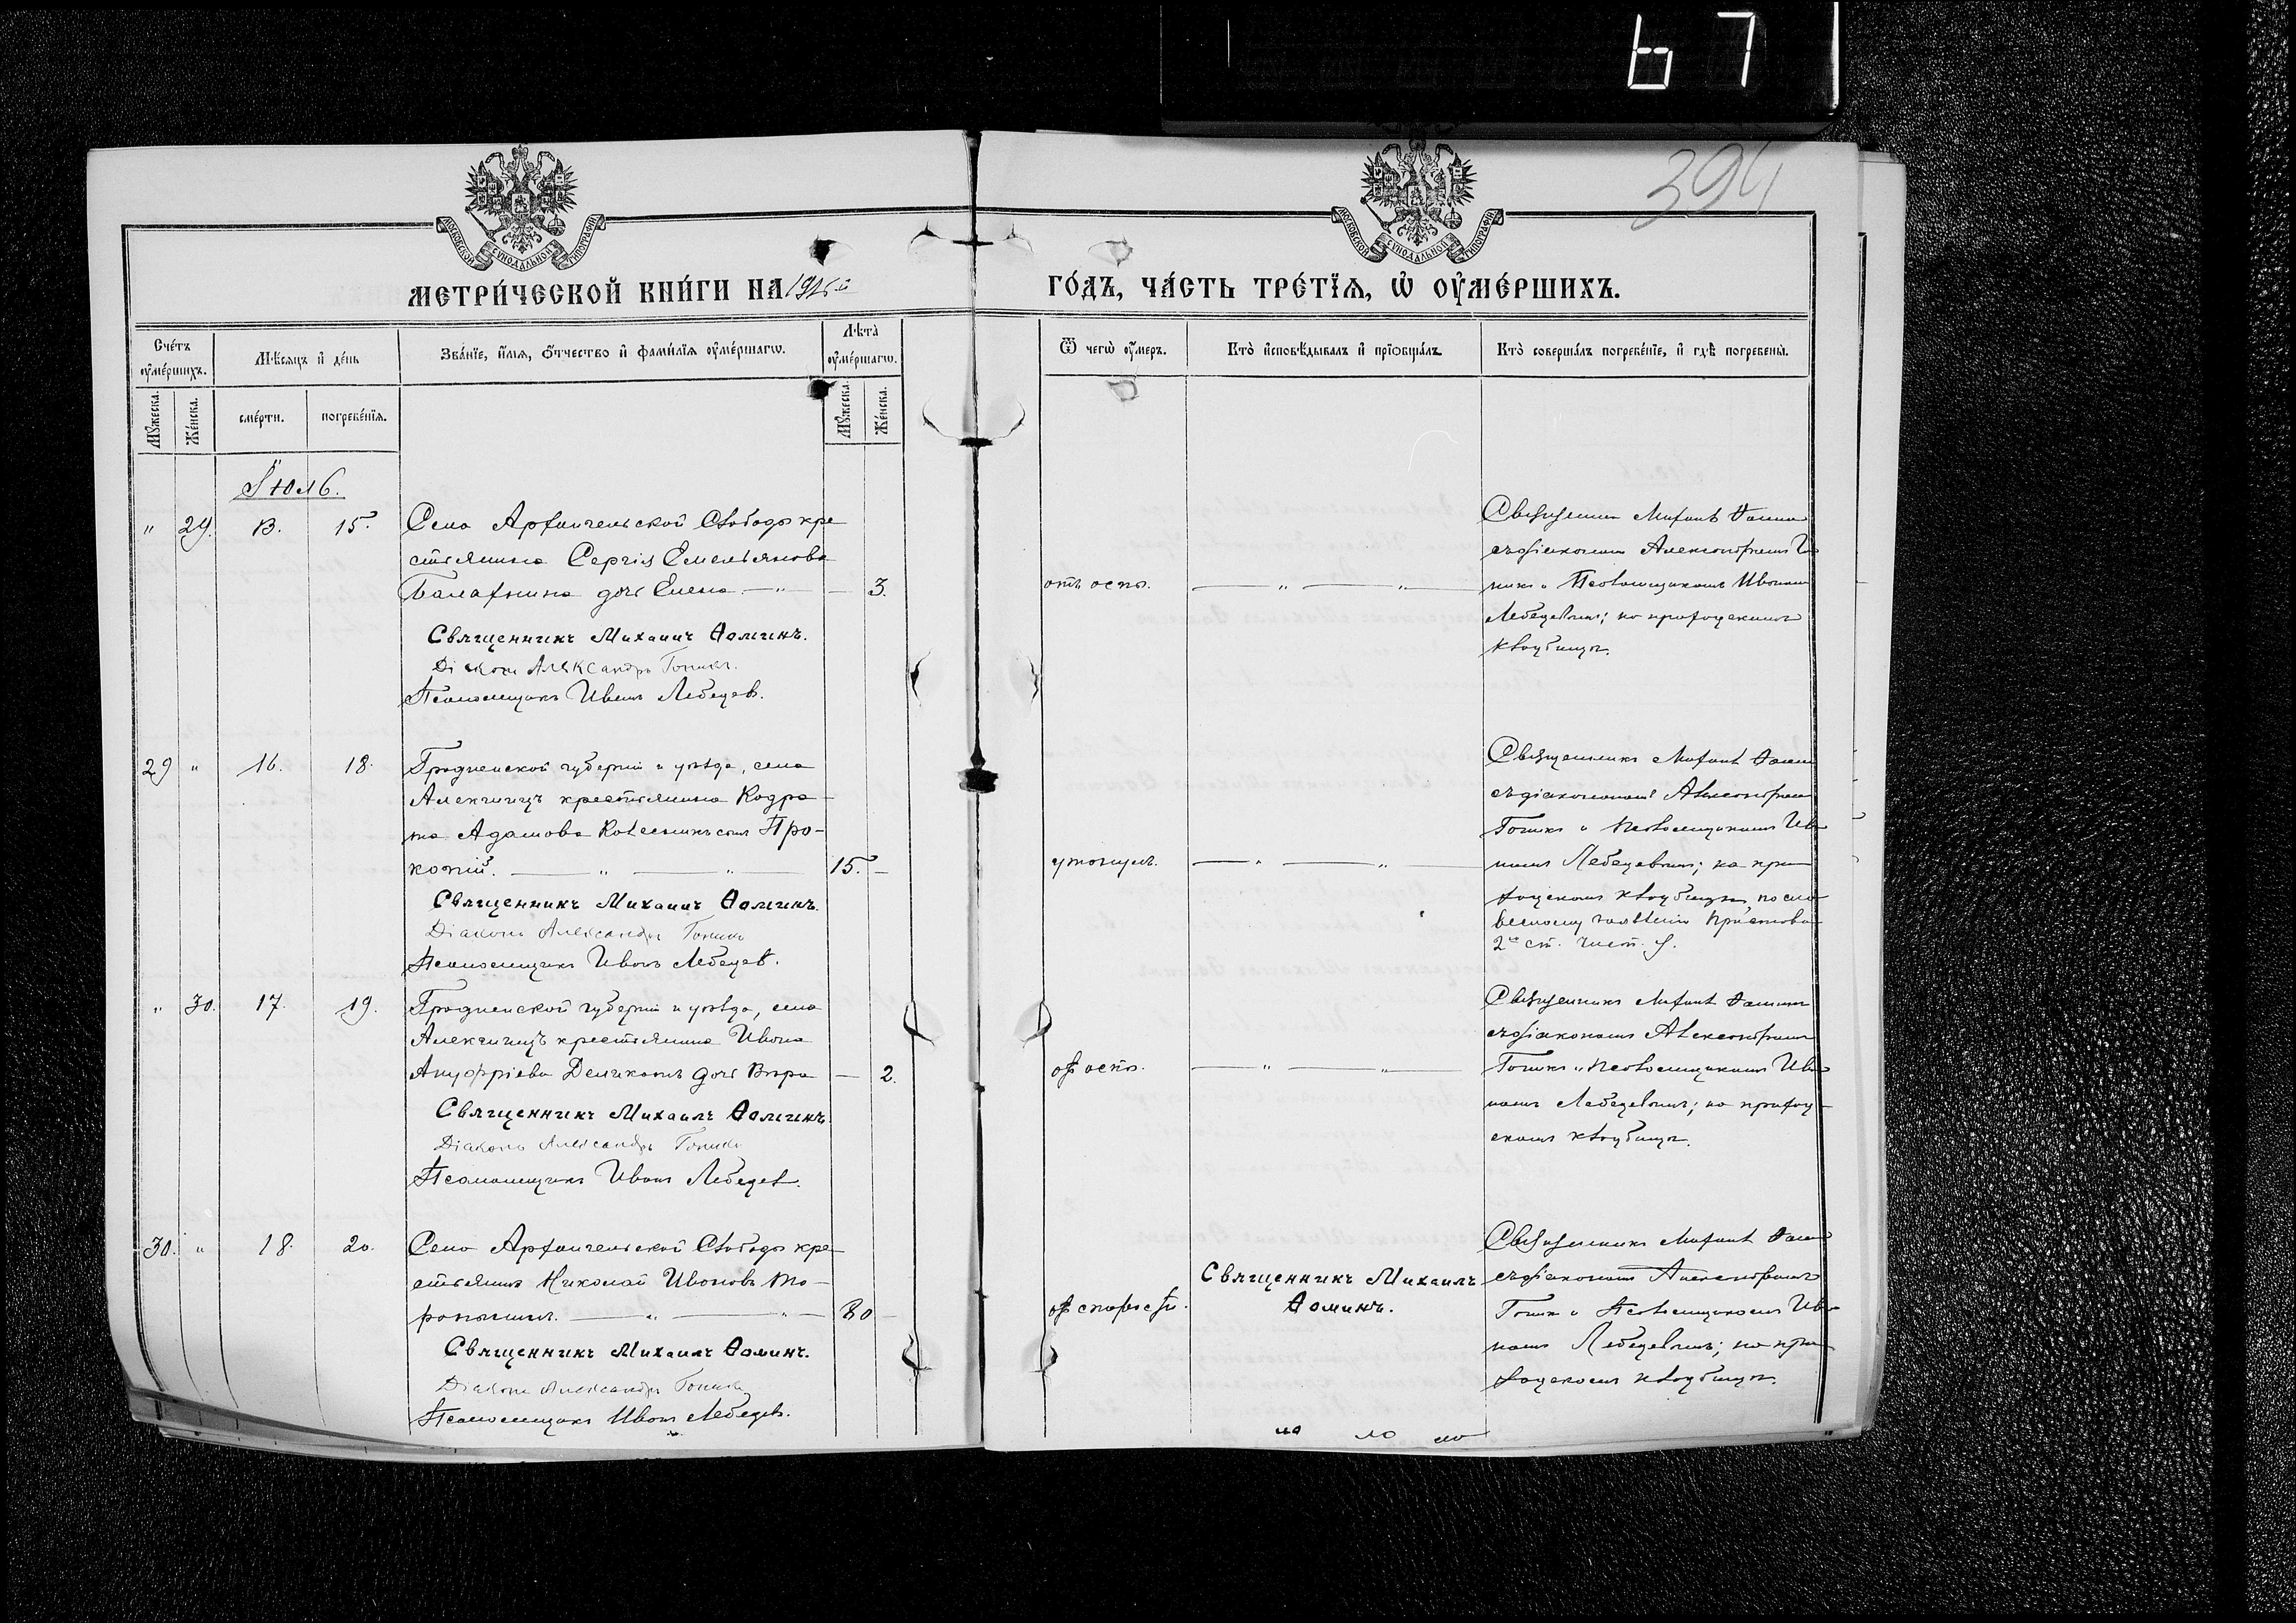 67
394
МОСКОВСКОЙ СУНОДАЛЬНОЙ ТИПОГРАФІИ
МОСКОВСКОЙ СУНОДАЛЬНОЙ ТИПОГРАФІИ
МЕТРИ́ЧЕСКОЙ КНИ́ГИ НА
ГО́ДЪ, ЧА́СТЬ ТРЕ́ТЇѦ, Ѡ҆ ОУ҆МЕ́РШИХЪ.
Сче́тъ оу҆ме́ршихъ.
Мѣ́сѧцъ и҆ де́нь
Зва́нїе, и҆́мѧ, ѻ҆́тчество и҆ фами́лїѧ оу҆ме́ршагѡ.
Лѣ̀та̀ оу҆ме́ршагѡ.
Ѿ чегѡ̀ оу҆́меръ.
Кто̀ и҆сповѣ́дывалъ и҆ прїѡбща́лъ.
Кто̀ соверша́лъ погребе́нїе, и҆ гдѣ̀ погребены̀.
Мꙋ́жеска.
Же́нска.
сме́рти.
погребе́нїѧ.
Мꙋ́жеска.
Же́нска.
Іюль.
" 29. 13. 15. Село Архангельской Слободы кре
стьянина Сергія Емельянова
дочь Елена — " — 3.
Священникъ Михаилъ Ѳоминъ.
Діаконъ Александръ Гопикъ.
Псаломщикъ Иванъ Лебедев.
отъ оспы. — " — "
Священник Михаилъ Ѳомин
съ діакономъ Александромъ Го
пикъ и Псаломщикомъ Иваном
Лебедевымъ; на приходскомъ
кладбищѣ.
29 " 16. 18. Гродненской губерніи и уѣзда, села
Алекшицъ крестьянина Кодра
та Адамова сынъ Про-
копій. — " — " 15. —
Священникъ Михаилъ Ѳоминъ.
Діаконъ Александръ Гопикъ
Псаломщикъ Иванъ Лебедев.
утонулъ. — " — "
Священникъ Михаилъ Ѳомин
съ діакономъ Александром
Гопикъ и Псаломщикомъ Ив
номъ Лебедевымъ; на при
ходскомъ кладбищѣ, по сло
весному Пристава
2го ст.
" 30. 17. 19. Гродненской губерніи и уѣзда, села
Алекшицъ крестьянина Ивана
Ануфріева дочь Вѣра — 2.
Священникъ Михаилъ Ѳоминъ
Діаконъ Александръ Гопикъ
Псаломщикъ Иванъ Лебедев.
от оспы. — " — "
Священникъ Михаилъ Ѳомин
съ діакономъ Александромъ
Гопикъ и Псаломщикомъ Ив
номъ Лебедевымъ; на приход-
скомъ кладбищѣ.
30. " 18. 20. Села Архангельской Слободы кре-
стьянинъ Николай Ивановъ То-
ропынинъ. — " — " 80 —
Священникъ Михаилъ Ѳоминъ.
Діаконъ Александръ Гопикъ
Псаломщикъ Иванъ Лебедев.
от старости.
Священникъ Михаилъ
Ѳоминъ.
Священникъ Михаилъ Ѳомин
съ діакономъ Александромъ
Гопик и Псаломщикомъ Ив
номъ Лебедевымъ; на при
ходскомъ кладбищѣ.